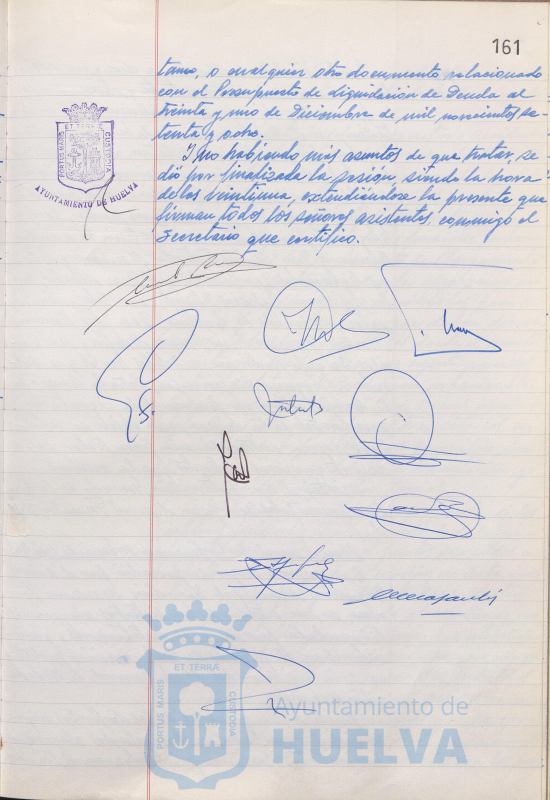 161
tamo, o cualquier otro documento relacionado
con el Presupuesto de Liquidación de Deuda al
treinta y uno de Diciembre de mil novecientos se-
tenta y ocho.
Y no habiendo más asuntos de que tratar, se
dió por finalizada la sesión, siendo la hora
de las veintiuna, extendiéndose la presente que
firman todos los señores asistentes, conmigo el
Secretario que certifico.
PORTUS MARIS
ET TERRÆ
CUSTODIA
AYUNTAMIENTO DE HUELVA
PORTUS MARIS
ET TERRÆ
CUSTODIA
Ayuntamiento de
HUELVA